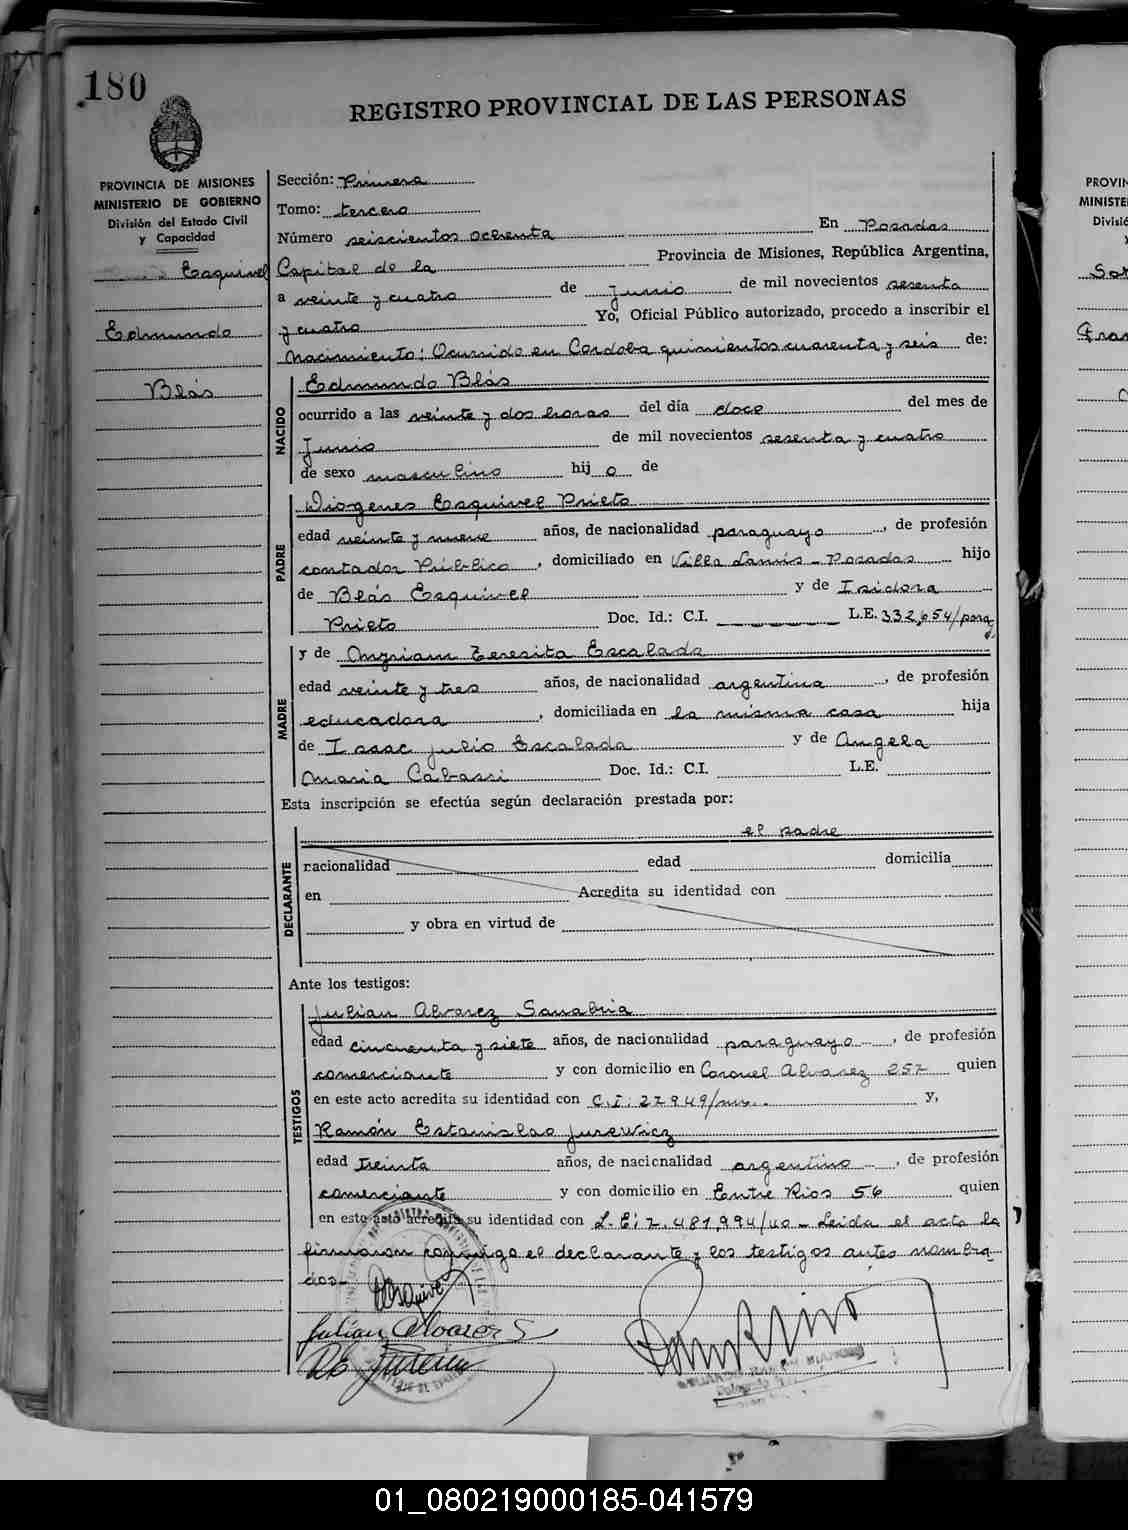 180
REGISTRO PROVINCIAL DE LAS PERSONAS
PROVINCIA DE MISIONES
MINISTERIO DE GOBIERNO
División del Estado Civil
y Capacidad
Esquivel
Edmundo
Blás
Sección: Primera
Tomo: tercero
Número seiscientos ochenta En Posadas
Capital de la Provincia de Misiones, República Argentina,
a veinte y cuatro de Junio de mil novecientos sesenta
y cuatro Yo, Oficial Público autorizado, procedo a inscribir el
Nacimiento: Ocurrido en Córdoba quinientos cuarenta y seis de:
NACIDO
Edmundo Blás
ocurrido a las veinte y dos horas del día doce del mes de
Junio de mil novecientos sesenta y cuatro
de sexo masculino hij o de
PADRE
Diogenes Esquivel Prieto
edad veinte y nueve años, de nacionalidad paraguayo, de profesión
contador Público, domiciliado en Villa Lanús - Posadas hijo
de Blás Esquivel y de Isidora
Prieto Doc. Id.: C.I. L.E. 332,654/parag
MADRE
y de Myriam Teresita Escalada
edad veinte y tres años, de nacionalidad argentina, de profesión
educadora, domiciliada en la misma casa hija
de Isaac Julio Escalada y de Angela
Maria Cabassi Doc. Id.: C.I. L.E.
Esta inscripción se efectúa según declaración prestada por:
DECLARANTE
el padre
nacionalidad edad domicilia
en Acredita su identidad con
y obra en virtud de
Ante los testigos:
TESTIGOS
Julian Alvarez Sanabria
edad cincuenta y siete años, de nacionalidad paraguayo, de profesión
comerciante y con domicilio en Coronel Alvarez 257 quien
en este acto acredita su identidad con C.I: 27949/mis. y,
Ramón Estanislao Jurewicz
edad treinta años, de nacionalidad argentino, de profesión
comerciante y con domicilio en Entre Rios 56 quien
en este acto acredita su identidad con L.E: 7.481,994/40 - Leida el acta la
firmaron conmigo el declarante y los testigos antes nombra
dos-
DEsquivel
Julián Alvarez S
PROVIN
MINISTE
Divisió
01_080219000185-041579